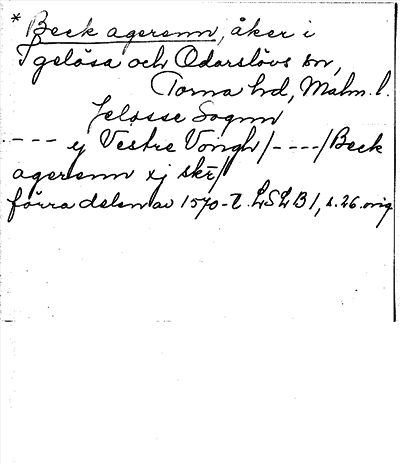 * Beck agerenn, åker i
Igelösa och Odarslövs sn,
Torna hd, Malm. l.
Jeløsse Sognn
--- ej Vestre Vongh/----/Beck
agerenn xj skr/
förra delen av 1570-t. LSLB 1, s. 26. orig